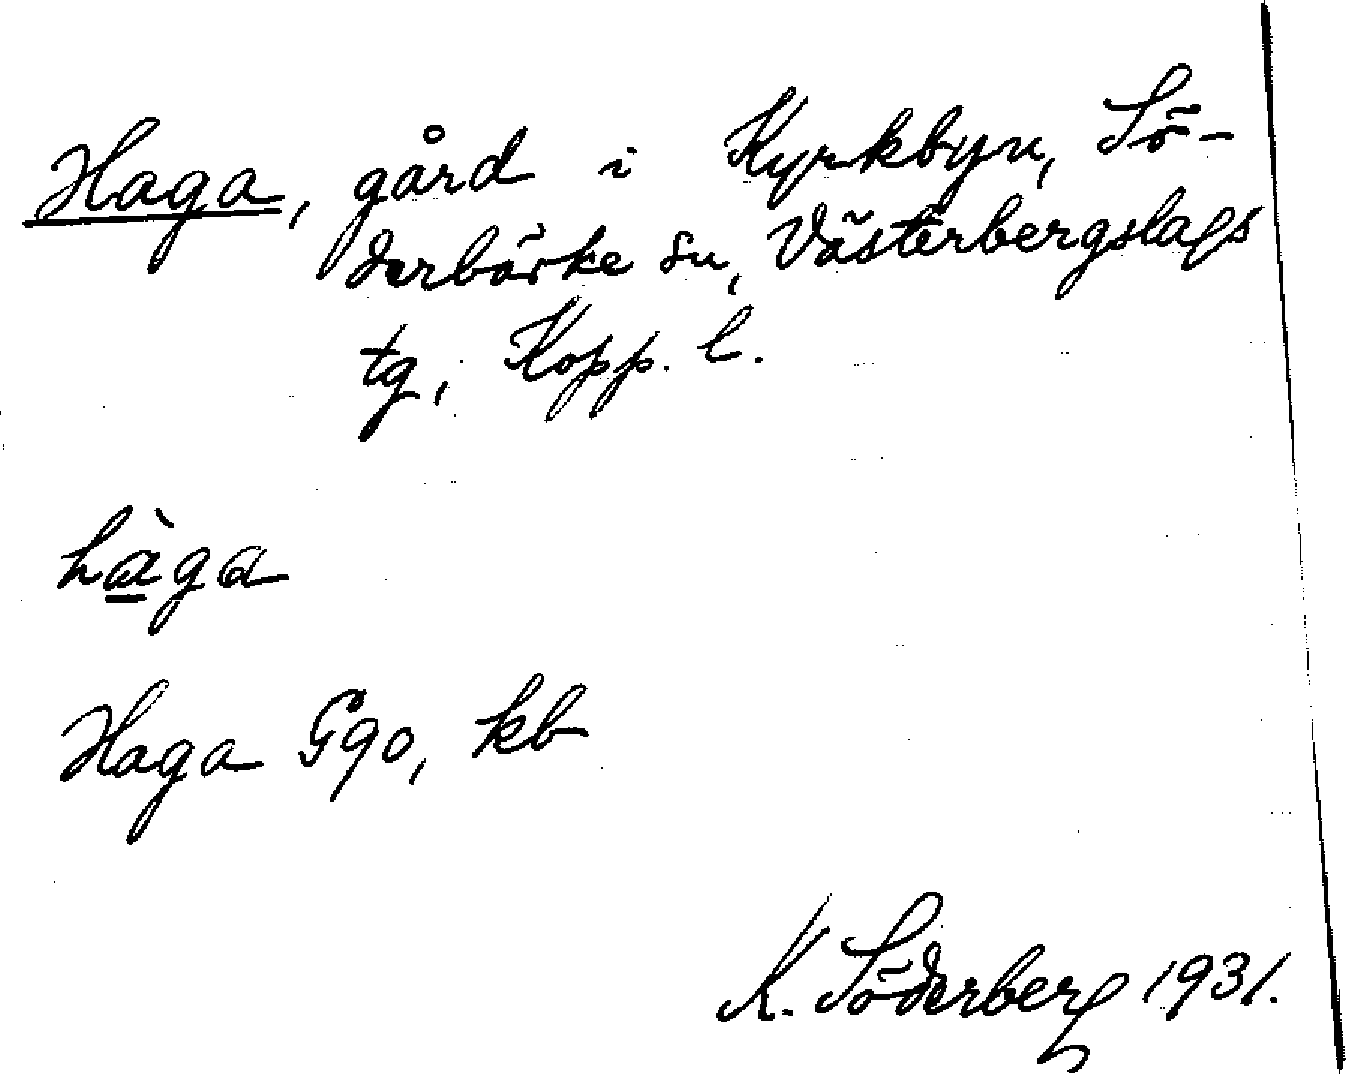 Haga, gård i Kyrkbyn, Sö-
derbärke sn, Västerbergslags
tg, Kopp. l.
hàga
Haga G90, kb
K. Söderberg 1931.